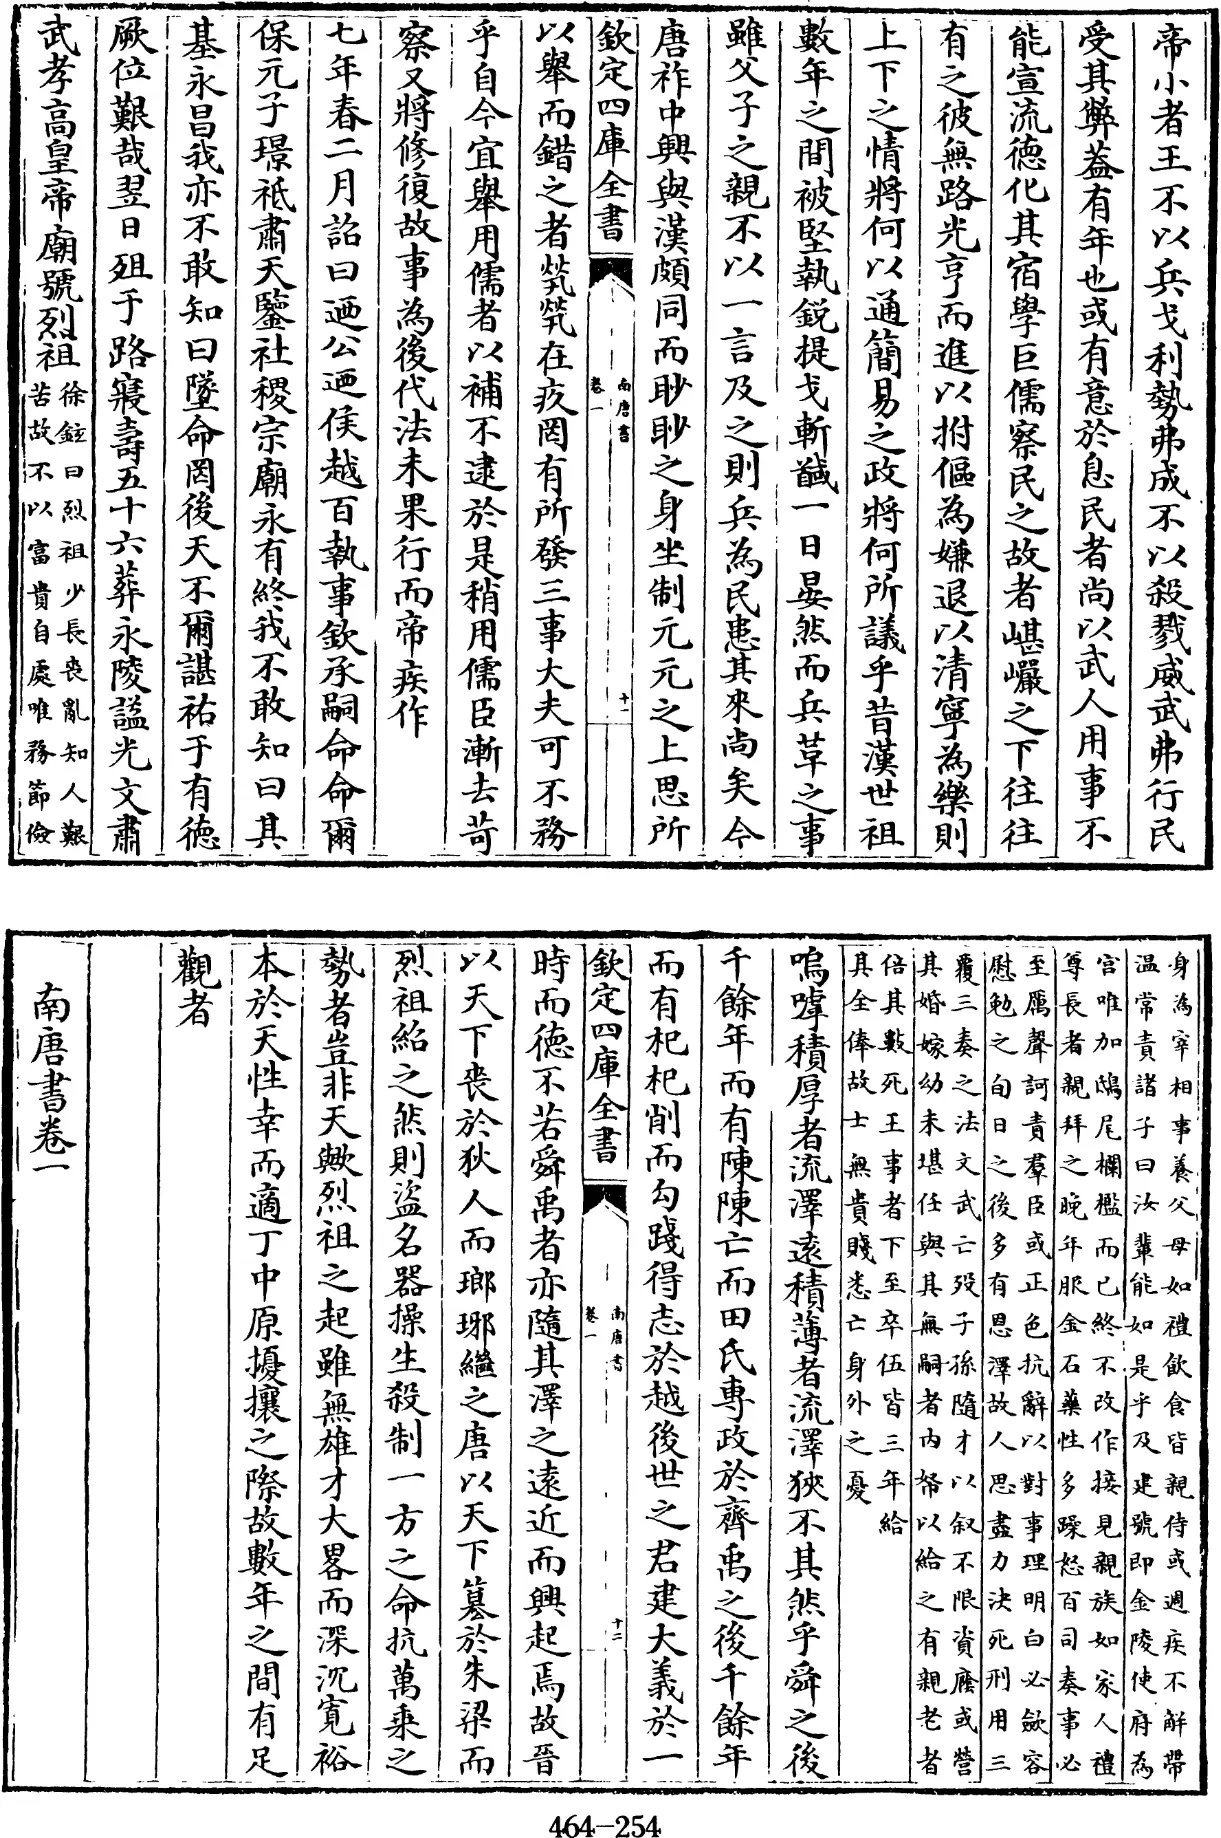 帝小者王不以兵戈利勢弗成不以殺戮威武弗行民
受其弊蓋有年也或有意於息民者尚以武人用事不
能宣流德化其宿學巨儒察民之故者嵁巖之下往往
有之彼無路光亨而進以拊傴為嫌退以清寧為樂則
上下之情將何以通簡易之政將何所議乎昔漢世祖
數年之間被堅執銳提戈斬馘一日晏然而兵革之事
雖父子之親不以一言及之則兵為民患其來尚矣今
唐祚中興與漢頗同而眇眇之身坐制元元之上思所
欽定四庫全書
南唐書
卷一
十一
以舉而錯之者煢煢在疚罔有所發三事大夫可不務
乎自今宜舉用儒者以補不逮於是稍用儒臣漸去苛
察又將修復故事為後代法未果行而帝疾作
七年春二月詔曰迺公迺侯越百執事欽承嗣命命爾
保元子璟祗肅天鑒社稷宗廟永有終我不敢知曰其
基永昌我亦不敢知曰墜命罔後天不爾諶祐于有德
厥位艱哉翌日殂于路寢壽五十六葬永陵謚光文肅
武孝高皇帝廟號烈祖
徐鉉曰烈祖少長喪亂知人艱
苦故不以富貴自處唯務節儉
身為宰相事養父母如禮飲食皆親侍或遇疾不解帶
温常責諸子曰汝輩能如是乎及建號即金陵使府為
宮唯加鴟尾欄檻而已終不改作接見親族如家人禮
尊長者親拜之晚年服金石藥性多躁怒百司奏事必
至厲聲訶責羣臣或正色抗辭以對事理明白必歛容
慰勉之旬日之後多有恩澤故人思盡力決死刑用三
覆三奏之法文武亡歿子孫隨才以叙不限資廕或營
其婚嫁幼未堪任與其無嗣者內帑以給之有親老者
倍其數死王事者下至卒伍皆三年給
其全俸故士無貴賤悉亡身外之憂
嗚嘑積厚者流澤遠積薄者流澤狹不其然乎舜之後
千餘年而有陳陳亡而田氏專政於齊禹之後千餘年
而有杞杞削而勾踐得志於越後世之君建大義於一
欽定四庫全書
南唐書
卷一
十二
時而德不若舜禹者亦隨其澤之遠近而興起焉故晉
以天下喪於狄人而瑯琊繼之唐以天下篡於朱梁而
烈祖紹之然則盜名器操生殺制一方之命抗萬乗之
勢者豈非天歟烈祖之起雖無雄才大畧而深沉寛裕
本於天性幸而適丁中原擾攘之際故數年之間有足
觀者
南唐書卷一
464-254